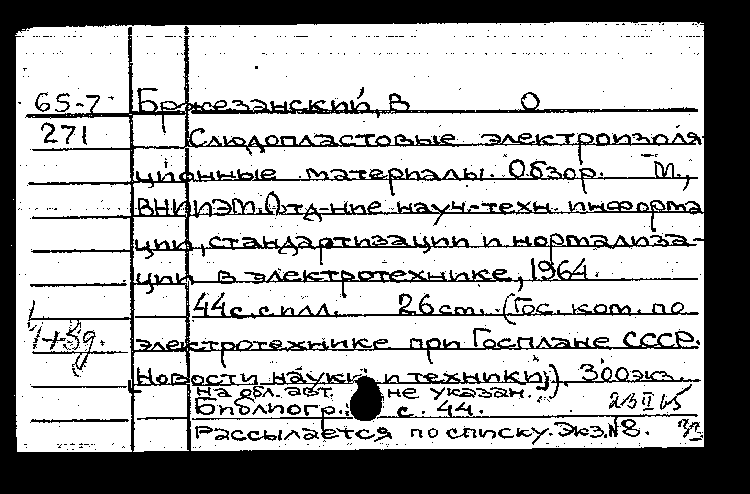 65-7 Бржезанский, В О
271 Слюдопластовые электроизоля-
ционные материалы. Обзор. М.,
ВНИИЭМ. Отд-ние науч.-техн. информа
ции, стандартизации и нормализа-
ции в электротехнике, 1964.
44с. с илл. 26 см. (Гос. ком. по
электротехнике при Госплане СССР.
Новости науки и техники). 300 экз.
На обл. авт. не указан.
Библиогр.: с. 44.
Рассылается по списку. Экз.№8.